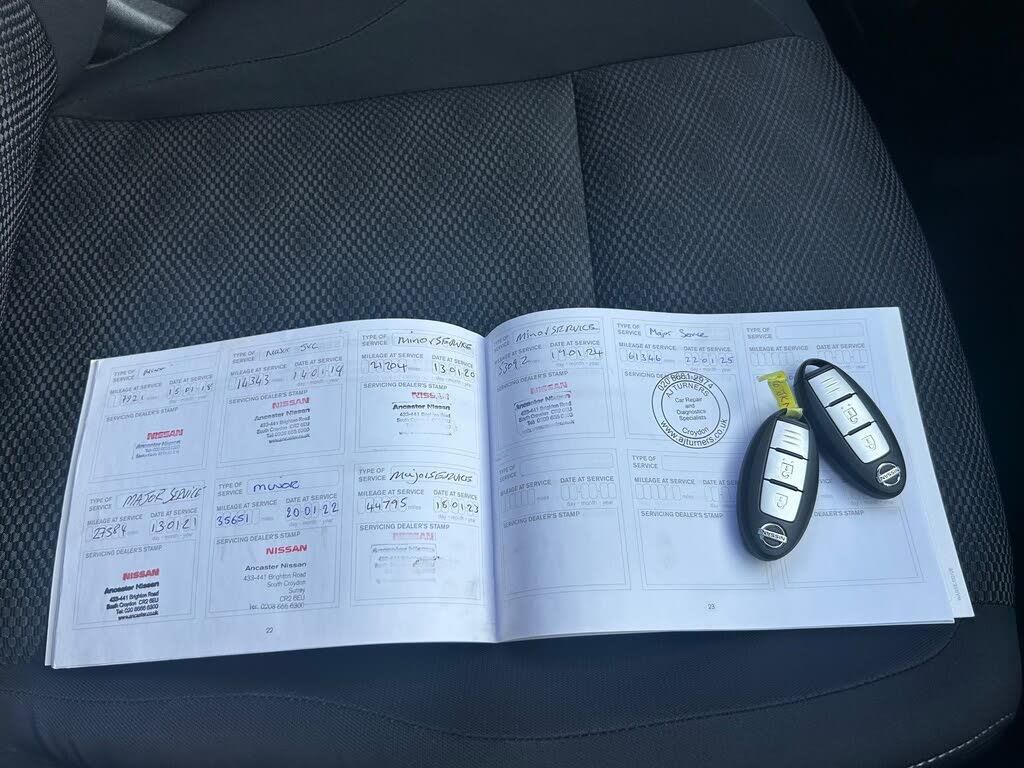 TYPE OF SERVICE Minor
MILEAGE AT SERVICE DATE AT SERVICE
7921 15 01 18
SERVICING DEALER'S STAMP
NISSAN
Ancaster Nissan
TYPE OF SERVICE Major SVC
MILEAGE AT SERVICE DATE AT SERVICE
14343 14 01 19
SERVICING DEALER'S STAMP
NISSAN
Ancaster Nissan
433-441 Brighton Road
South Croydon CR2 6EU
TYPE OF SERVICE Minor SERVICE
MILEAGE AT SERVICE DATE AT SERVICE
21204 13 01 20
SERVICING DEALER'S STAMP
NISSAN
Ancaster Nissan
433-441 Brighton Road
South Croydon CR2 6EU
TYPE OF SERVICE MAJOR SERVICE
MILEAGE AT SERVICE DATE AT SERVICE
27584 13 01 21
day - month - year
SERVICING DEALER'S STAMP
NISSAN
Ancaster Nissan
433-441 Brighton Road
South Croydon CR2 6EU
Tel: 020 8666 6300
www.ancaster.co.uk
TYPE OF SERVICE MINOR
MILEAGE AT SERVICE DATE AT SERVICE
35651 miles 20 01 22
day - month - year
SERVICING DEALER'S STAMP
NISSAN
Ancaster Nissan
433-441 Brighton Road
South Croydon
Surrey
CR2 6EU
Tel: 0208 666 6300
TYPE OF SERVICE Major SERVICE
MILEAGE AT SERVICE DATE AT SERVICE
44795 miles 16 01 23
day - month - year
SERVICING DEALER'S STAMP
NISSAN
Ancaster Nissan
22
TYPE OF SERVICE Minor SERVICE
MILEAGE AT SERVICE DATE AT SERVICE
17 01 24
SERVICING DEALER'S STAMP
NISSAN
Ancaster Nissan
433-441 Brighton Road
TYPE OF SERVICE Major Service
MILEAGE AT SERVICE DATE AT SERVICE
61346 22 01 25
SERVICING DEALER'S STAMP
020 8681 2574
AJ TURNERS
Car Repair
and
Diagnostics
Specialists
Croydon
www.ajturners.co.uk
TYPE OF SERVICE
MILEAGE AT SERVICE DATE AT SERVICE
TYPE OF SERVICE
MILEAGE AT SERVICE DATE AT SERVICE
miles day - month - year
SERVICING DEALER'S STAMP
TYPE OF SERVICE
MILEAGE AT SERVICE
SERVICING DEALER'S STAMP
day - month - year
23
NISSAN
NISSAN